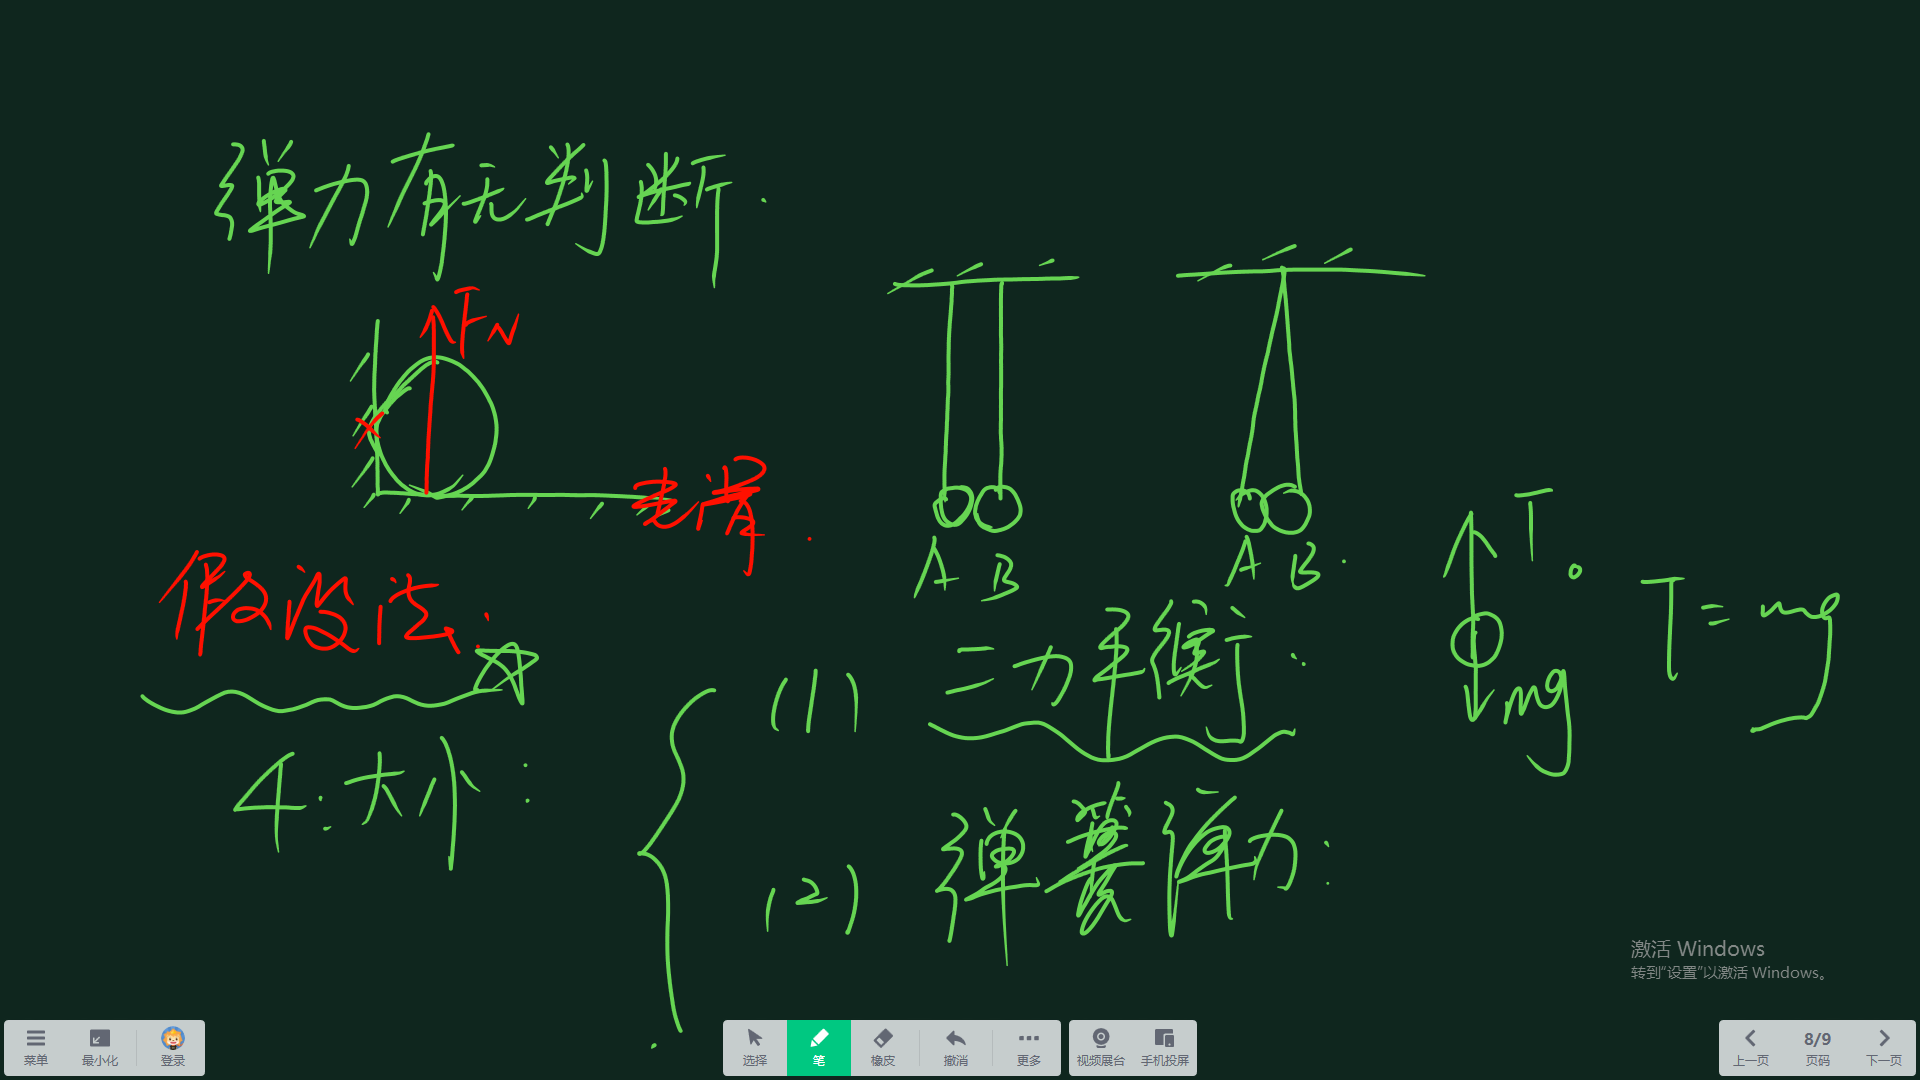 弹力有无判断.
FN
光滑.
A B
A B.
假设法:
T.
T=mg
mg
4.大小:
(1) 二力平衡:
(2) 弹簧弹力:
激活 Windows
转到“设置”以激活 Windows。
菜单 最小化 登录 选择 笔 橡皮 撤消 更多 视频展台 手机投屏 上一页 8/9 页码 下一页